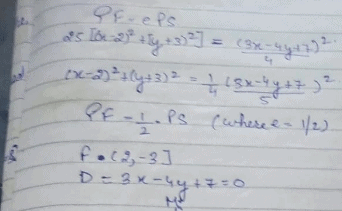 PF = ePS
25 [(x-2)² + (y+3)²] = (3x-4y+7)² / 4
(x-2)² + (y+3)² = 1/4 (3x-4y+7 / 5)²
PF = 1/2 . PS (where e = 1/2)
F • (2, -3]
D = 3x - 4y + 7 = 0